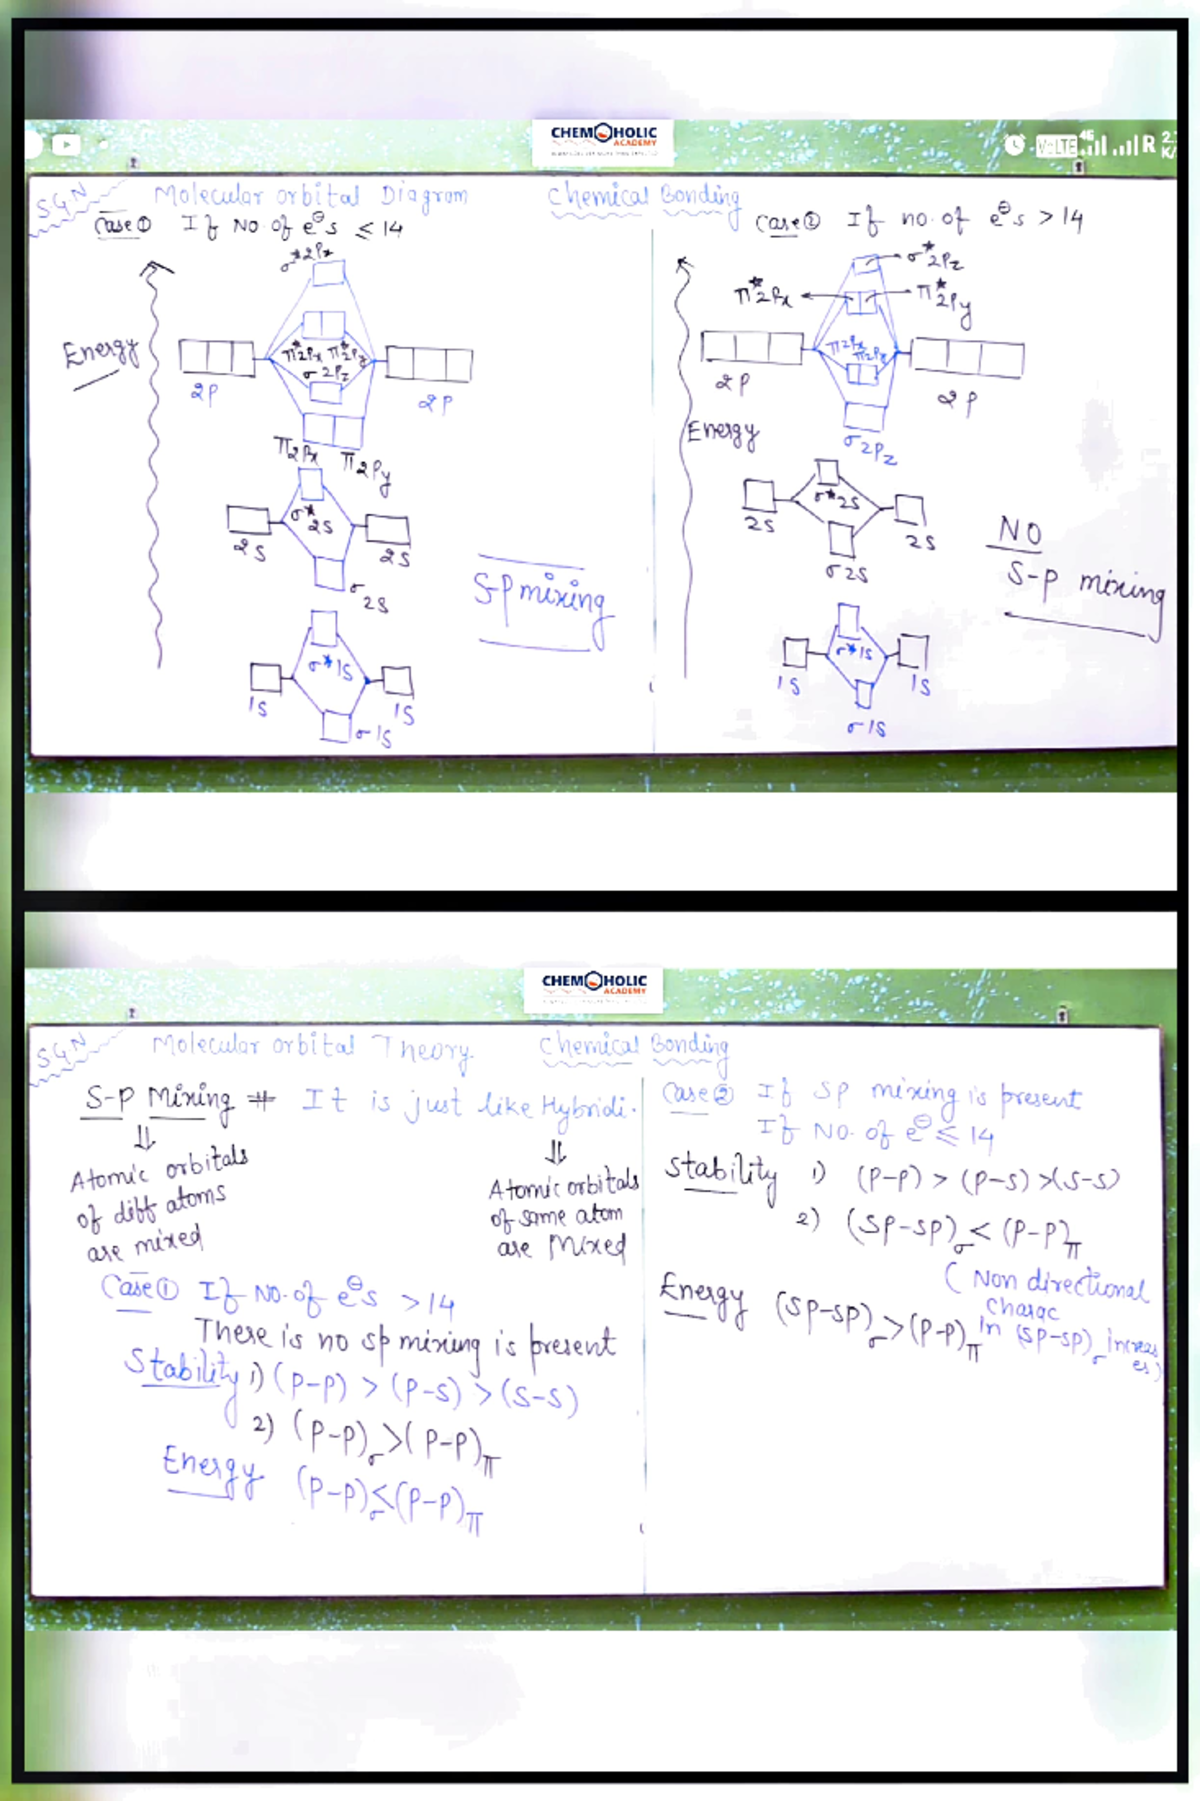 CHEMOHOLIC
ACADEMY
VoLTE 4G R 2.
K/
SGN Molecular orbital Diagram Chemical Bonding
Case ① If No. of e⊖s ≤ 14
σ*2Px
π*2Px π*2Py
σ 2Pz
2P 2P
π2Px π2Py
Energy
σ*2S
2S 2S
σ2S
S-P mixing
σ*1S
1S 1S
σ1S
Case ② If no. of e⊖s > 14
σ*2Pz
π*2Px π*2Py
π2Px π2Py
2P 2P
Energy
σ2Pz
σ*2S
2S 2S
σ2S
NO
S-P mixing
σ*1S
1S 1S
σ1S
CHEMOHOLIC
ACADEMY
SGN Molecular orbital Theory. Chemical Bonding
S-P Mixing # It is just like Hybridi.
⇓ ⇓
Atomic orbitals
of diff atoms
are mixed
Atomic orbitals
of same atom
are Mixed
Case ① If No. of e⊖s > 14
There is no sp mixing is present
Stability 1) (P-P) > (P-S) > (S-S)
2) (P-P)σ > (P-P)π
Energy (P-P)σ < (P-P)π
Case ② If SP mixing is present
If No. of e⊖ ≤ 14
Stability 1) (P-P) > (P-S) > (S-S)
2) (SP-SP)σ < (P-P)π
( Non directional
charac
in (SP-SP)σ increas
es)
Energy (SP-SP)σ > (P-P)π